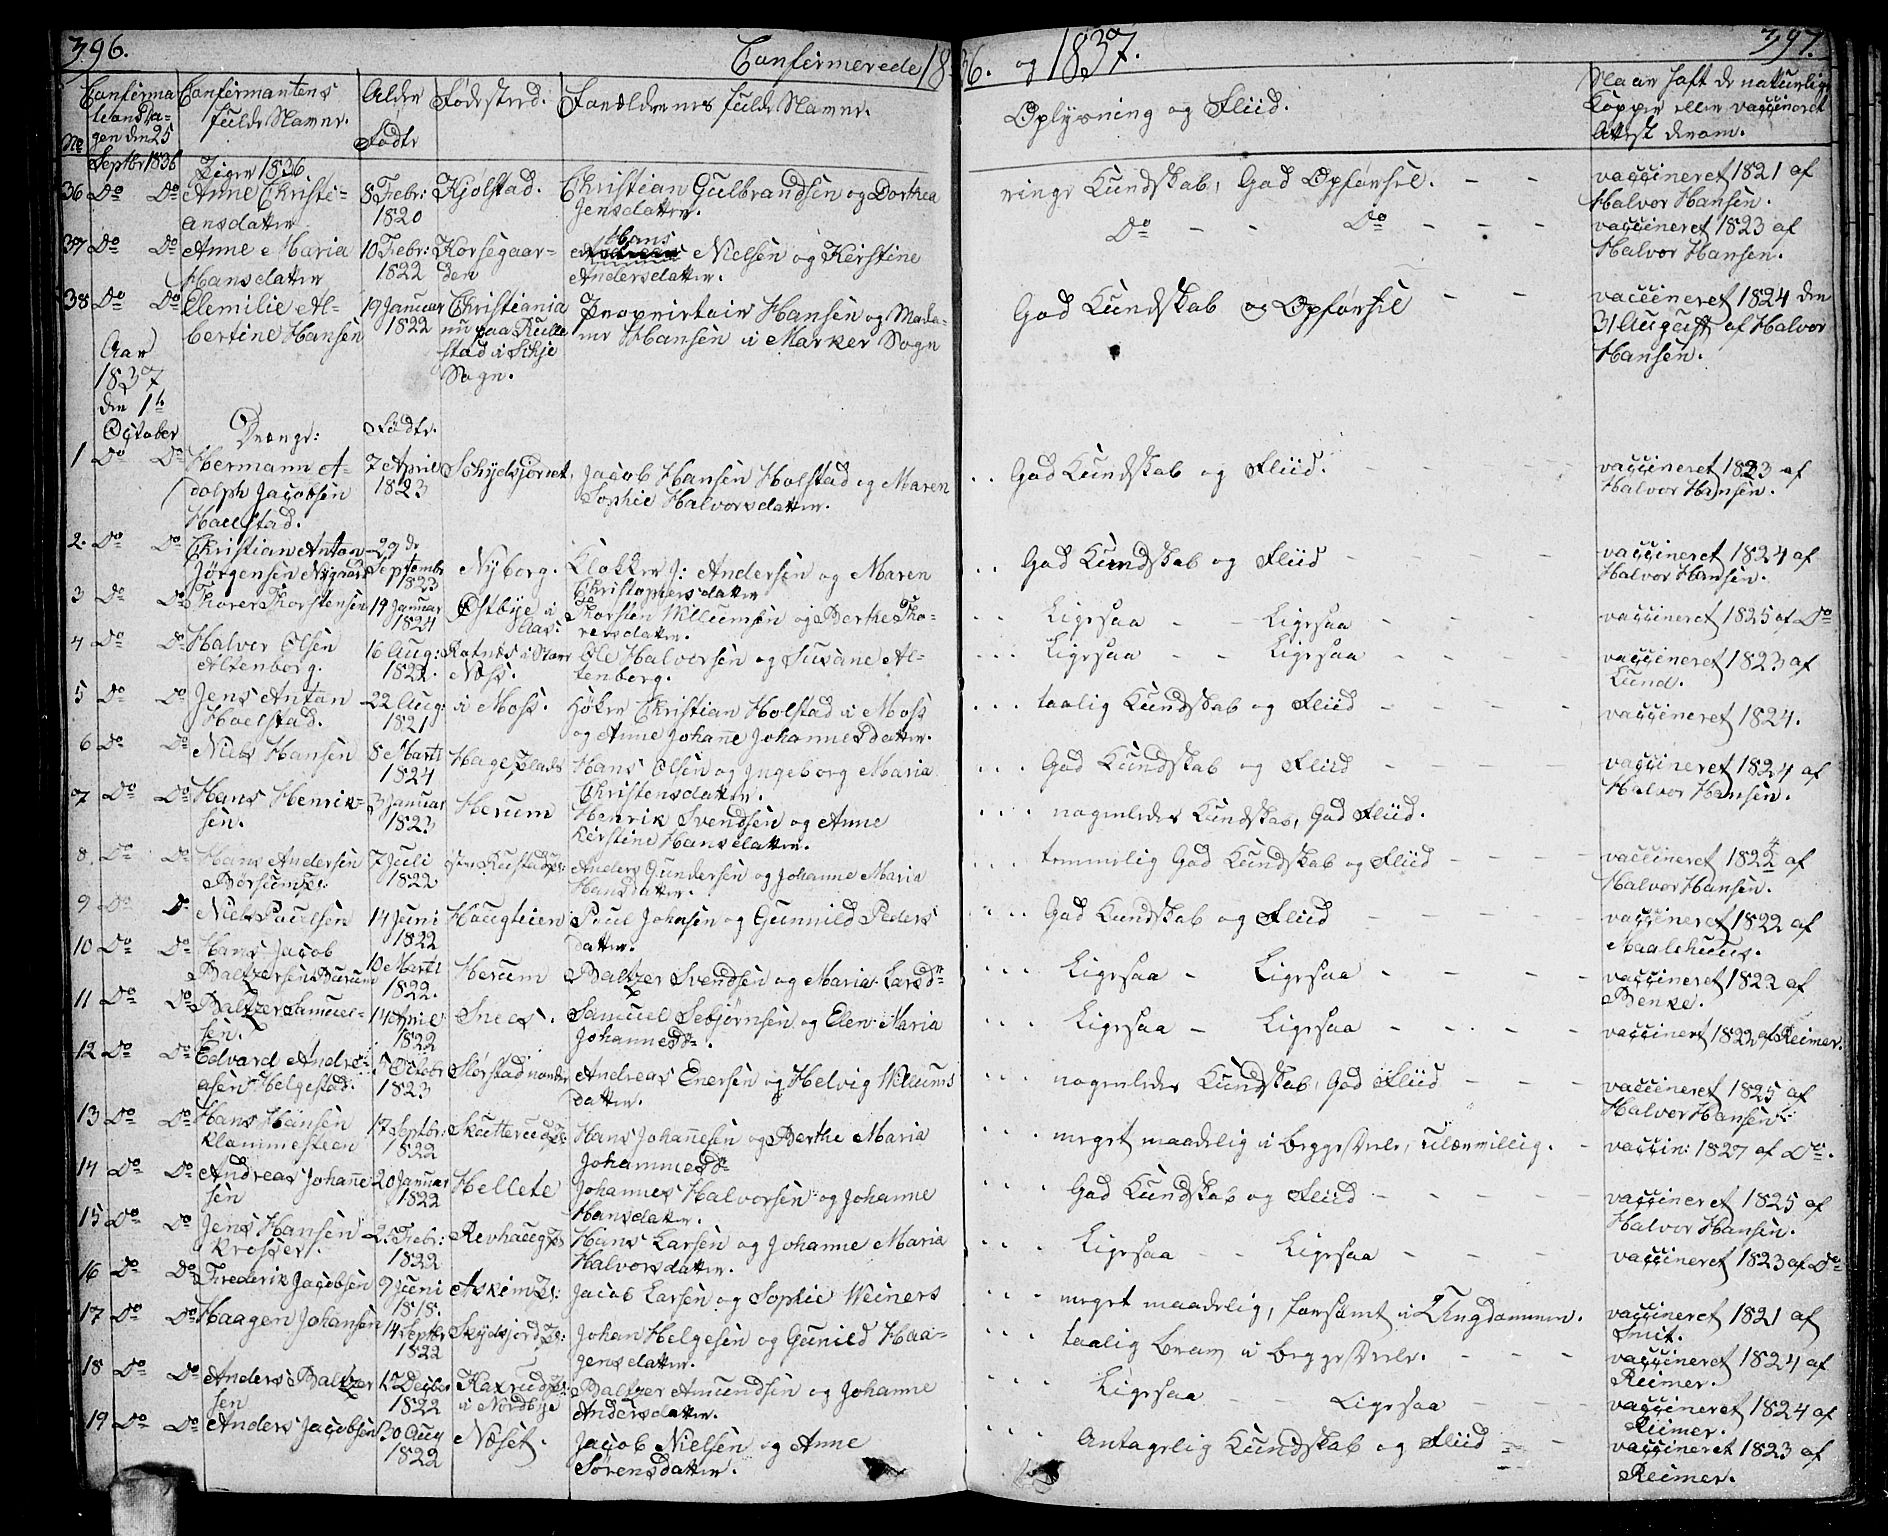 396.
Confirmerede 1836. og 1837.
397.
No
Confirma
tionsda-
gen den 25
Septbr 1836
Confirmantens
fulde Navne.
Piger 1836
Alder
Født
Fødested.
Forældrenes fulde Navne.
Oplysning og Fliid.
Naar haft de naturlige
Kopper eller vaccineret
Attest derom.
36 Do Do Anne Christi-
ansdatter
8 Febr:
1820
Kjølstad.
Christian Gulbrandsen og Dorthea
Jensdatter.
ringe Kundskab, God Opførsel. - -
vaccineret 1821 af
Halvor Hansen.
37 Do Do Anne Maria
Hansdatter
10 Febr:
1822
Korsegaar-
den
Hans
Nielsen og Kerstine
Andersdatter.
Do - - Do - - -
vaccineret 1823 af
Halvor Hansen.
38 Do Do Elemilie Al-
bertine Hansen
19 Januar
1822
Christiania
nu paa Rulle
stad i Skje
Sogn.
Proprietair Hansen og Mada-
me Hansen i Marker Sogn
God Kundskab og Opførsel - -
vaccineret 1824 den
31 August af Halvor
Hansen.
Aar
1837
den 1te
October
Drenge:
Fødte.
1 Do Do Hermann A-
dolph Jacobsen
Haelstad.
7 April
1823
Schydsjordet
Jacob Hansen Holstad og Maren
Sophie Halvorsdatter.
God Kundskab og Fliid.
vaccineret 1823 af
Halvor Hansen.
2. Do Do Christian Anton
Jørgensen Nygaard
29 de
Septembr
1823
Nyborg.
Klokker J: Andersen og Maren
Christophersdatter
God Kundskab og Fliid
vaccineret 1824 af
Halvor Hansen.
3 Do Do Thorer Thorstensen
19 Januar
1824
Østbye i
Aas.
Thorsten Willumsen og Berthe Tho-
resdatter.
Ligesaa - - Ligesaa
vaccineret 1825 af Do
4 Do Do Halvor Olsen
Altenborg.
16 Aug:
1822.
Ratnes i
Næss.
Ole Halvorsen og Susane Al-
tenberg.
Ligesaa - - Ligesaa
vaccineret 1823 af
Lund.
5 Do Do Jens Anton
Haelstad.
22 Aug:
1821
i Moss.
Høker Christian Holstad i Moss
og Anne Johanne Johannesdatter.
taalig Kundskab og Fliid
vaccineret 1824.
6 Do Do Niels Hansen
8 Marti
1824
Hage Plads
Hans Olsen og Ingeborg Maria
Christensdatter.
God Kundskab og Fliid
vaccineret 1824 af
Halvor Hansen.
7 Do Do Hans Henrik-
sen.
3 Januar
1823
Herum
Henrik Svendsen og Anne
Kirstine Hansdatter.
nogenledes Kundskab, God Fliid.
8. Do Do Hans Andersen
Børsum
7 Juli
1822
østre Rustad
Anders Gundersen og Johanne Maria
Hansdatter.
temmelig God Kundskab og Fliid
vaccineret 1822 af
Halvor Hansen.
9 Do Do Niels Paulsen
14 Juni
1822
Haugteien
Poul Johnsen og Gunnild Peders
datter.
God Kundskab og Fliid
vaccineret 1822 af
Maalehuus.
10 Do Do Hans Jacob
Baltzersen Burum
10 Marti
1822.
Herum
Baltzer Svendsen og Maria Larsdr
Ligesaa - Ligesaa
vaccineret 1822 af
Benke.
11 Do Do Baltzer Samuel-
sen.
14 April
1822
Snees.
Samuel Sebjørnsen og Elen Maria
Johannesdr.
Ligesaa - Ligesaa
vaccinert 1822 af Reimer.
12 Do Do Edvard Andre-
asen Helgestad.
5 Octobr
1823
Slørstad nordre
Andreas Enersen og Helvig Willums
datter.
nogenledes Kundskab, God Fliid
vaccineret 1825 af
Halvor Hansen.
13 Do Do Hans Hansen
Klammesteen
17 Septbr:
1822
Skutterud
Hans Johannesen og Berthe Maria
Johannesdr
meget maadelig i begge Deele, ulærvillig.
vaccin: 1827 af Do.
14 Do Do Andreas Johanne
sen
20 Januar
1822
Hellete
Johannes Halvorsen og Johanne
Hansdatter.
God Kundskab og Fliid
vaccineret 1825 af
Halvor Hansen.
15 Do Do Jens Hansen
Krosser.
25 Febr:
1822
Revhaug
Hans Larsen og Johanne Maria
Halvorsdatter.
Ligesaa - - Ligesaa
vaccineret 1823 af Do
16 Do Do Frederik Jacobsen
9 Juni
1818.
Askim
Jacob Larsen og Sophie Weiners
meget maadelig, forsømt i Ungdommen.
vaccineret 1821 af
Smit.
17 Do Do Haagen Johansen
14 Septbr
1822
Skydsjord
Johan Helgesen og Gunild Haa-
gensdatter.
taalig Brav i begge Deele.
vaccineret 1824 af
Reimer.
18 Do Do Anders Baltzer
sen
15 Decbr
1822
Kaxrud
i Nordbye
Baltzer Amundsen og Johanne
Andersdatter.
Ligesaa - - Ligesaa
vaccineret 1824 af
Reimer.
19 Do Do Anders Jacobsen
30 Aug
1822
Næset.
Jacob Nielsen og Anne
Sørensdatter.
Antagelig Kundskab og Fliid
vaccineret 1823 af
Reimer.